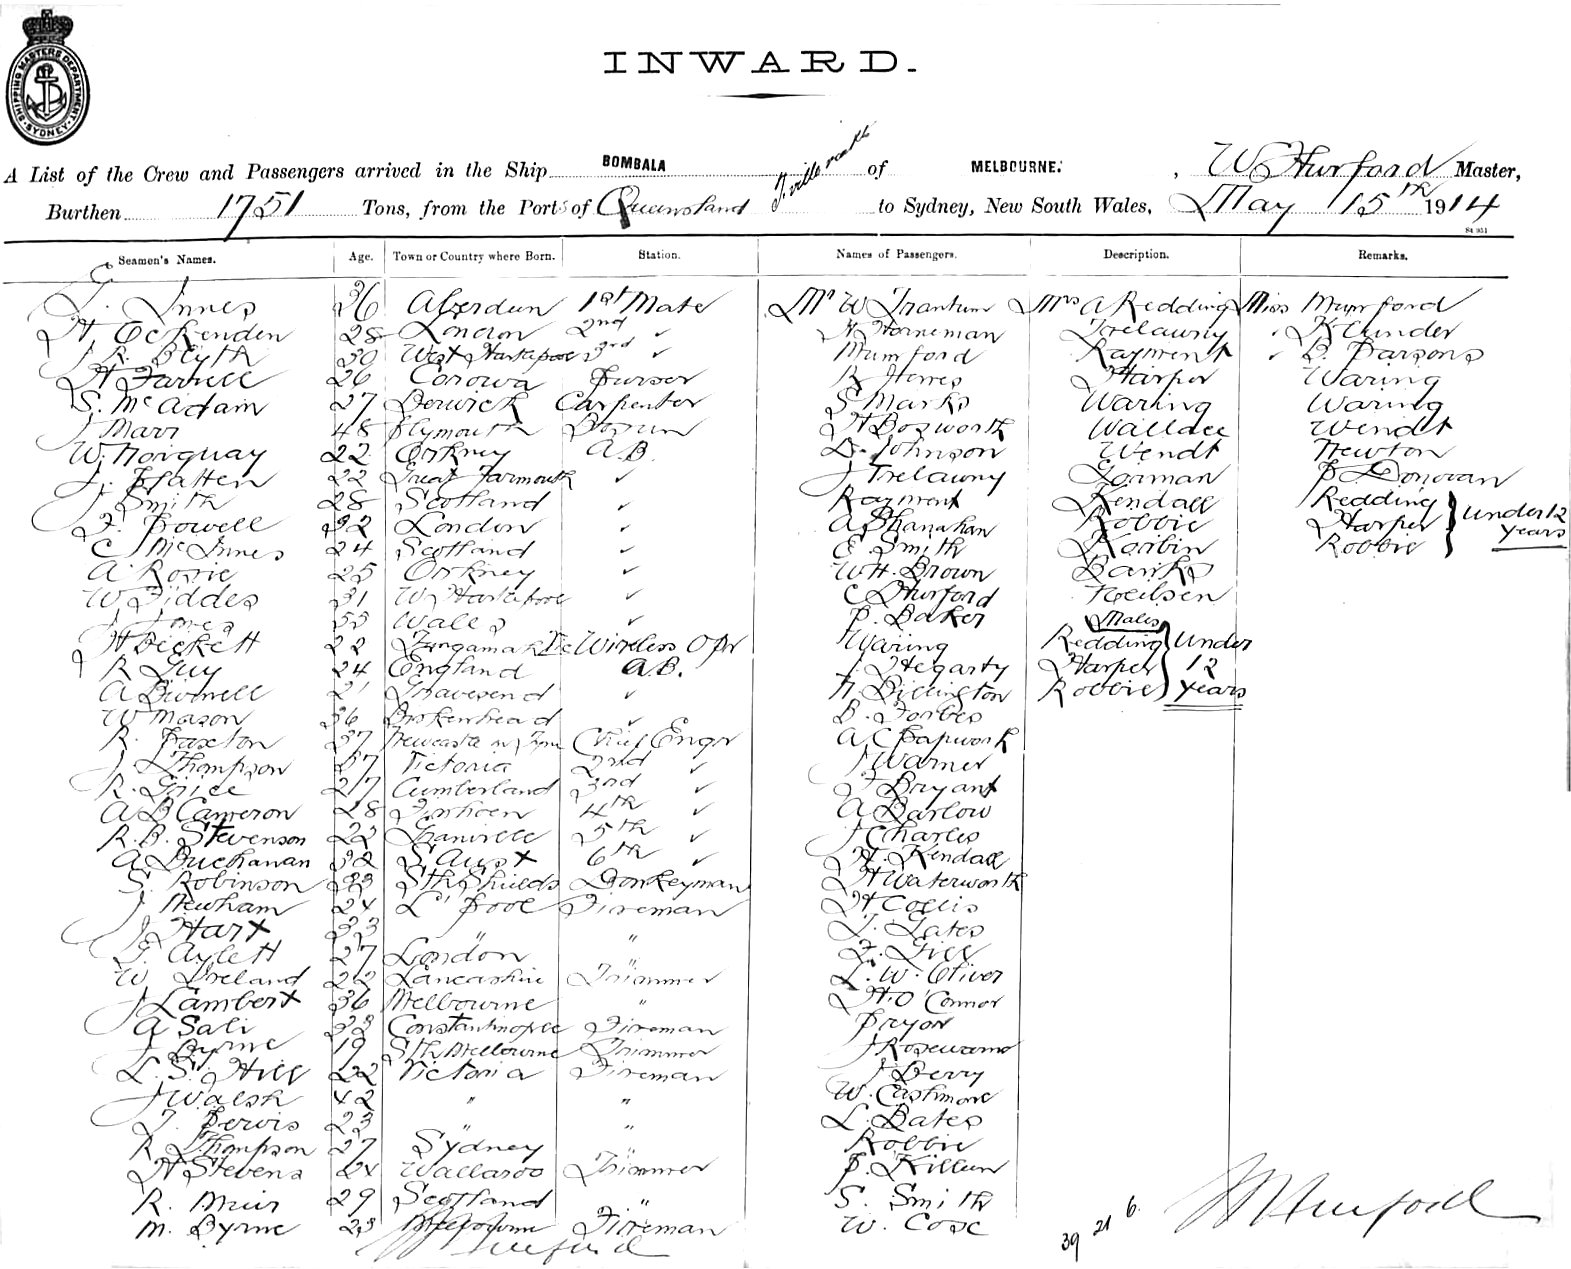 SHIPPING MASTERS DEPARTMENT SYDNEY
INWARD.
A List of the Crew and Passengers arrived in the Ship BOMBALA of MELBOURNE. , W Hurford Master,
Burthen 1751 Tons, from the Ports of Queensland to Sydney, New South Wales, May 15th 1914
Seamen's Names. Age. Town or Country where Born. Station. Names of Passengers. Description. Remarks.
Innes 36 Aberdeen 1st Mate Mr W Trantum Mrs A Redding Miss Mumford
H Eckenden 28 London 2nd ✓ H Horneman Trelawny Klunder
J R Blyth 30 West Hartlepool 3rd ✓ Mumford Rayment ✓ B. Parsons
H Farrell 26 Corowa Purser R Herres Harper Waring
S. McAdam 27 Berwick Carpenter S Marks Waring Waring
J Marr 48 Plymouth Bosun H Bosworth Wallace Wendt
W. Norquay 22 Orkney A.B. D. Johnson Wendt Newton
J. Pfatten 22 Great Yarmouth ✓ J Trelawny Gorman P Donovan
J Smith 28 Scotland ✓ Rayment Kendall Redding
F. Powell 32 London ✓ A Shanahan Robbie Harper under 12
C McInnes 24 Scotland ✓ E. Smith Korbin Robbie years
A Rosie 25 Orkney ✓ W.H. Brown Banks
W Fiddes 31 W Hartlepool ✓ C Hurford Neilsen
J Jones 53 Wales ✓ P. Baker Males
H Beckett 22 Wireless Opr Waring Redding under
R Guy 24 England A.B. J Hegarty Harper 12
A Bidwell 21 Gravesend ✓ H Billington Robbie years
W Mason 36 Birkenhead ✓ B. Forbes
R. Paxton 37 Newcastle on Tyne Chief Engr A C Papwork
J Thompson 37 Victoria 2nd ✓ J Warner
R. Grice 27 Cumberland 3rd ✓ F Bryant
A B Cameron 28 4th ✓ A Barlow
R.B. Stevenson 22 5th ✓ J Charles
A Buchanan 32 S Aust 6th ✓ H. Kendall
S. Robinson 33 Sth Shields Donkeyman H Waterworth
J Newham 24 L'Pool Fireman H Collis
J Hart 33 " " T. Yates
F. Aylett 27 London " F. Gill
W Ireland 22 Lancashire Trimmer L. W. Oliver
J Lambert 36 Melbourne " H. O'Connor
A Sali 33 Constantinople Fireman Pryor
J Byrne 19 Sth Melbourne Trimmer J Rosewarne
L. S. Hill 22 Victoria Fireman J Berry
J Walsh 42 " " W. Cashmore
T. Pervis 23 " " L. Bates
R Thompson 27 Sydney " Robbie
H Stevens 24 Wallaroo Trimmer P. Killen
R. Muir 29 Scotland " S. Smith
M. Byrne 23 Melbourne Fireman W. Cose
39 21 6.
W Hurford
W Hurford